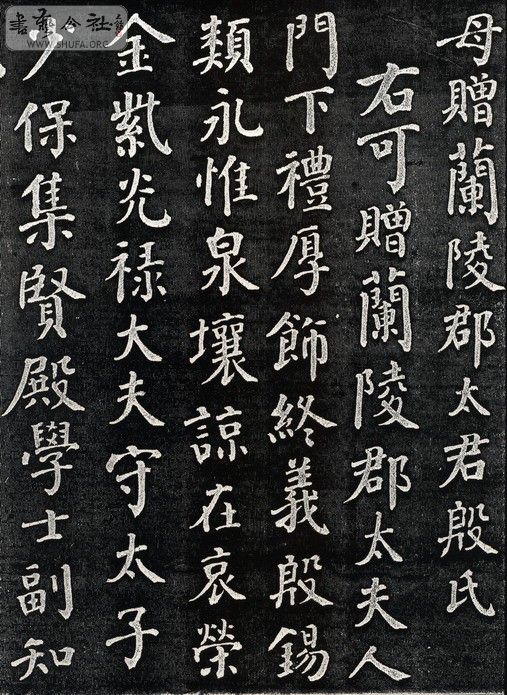 母贈蘭陵郡太君殷氏
右可贈蘭陵郡太夫人
門下禮厚飾終義殷錫
類永惟泉壤諒在哀榮
金紫光禄大夫守太子
少保集賢殿學士副知
WWW.SHUFA.ORG